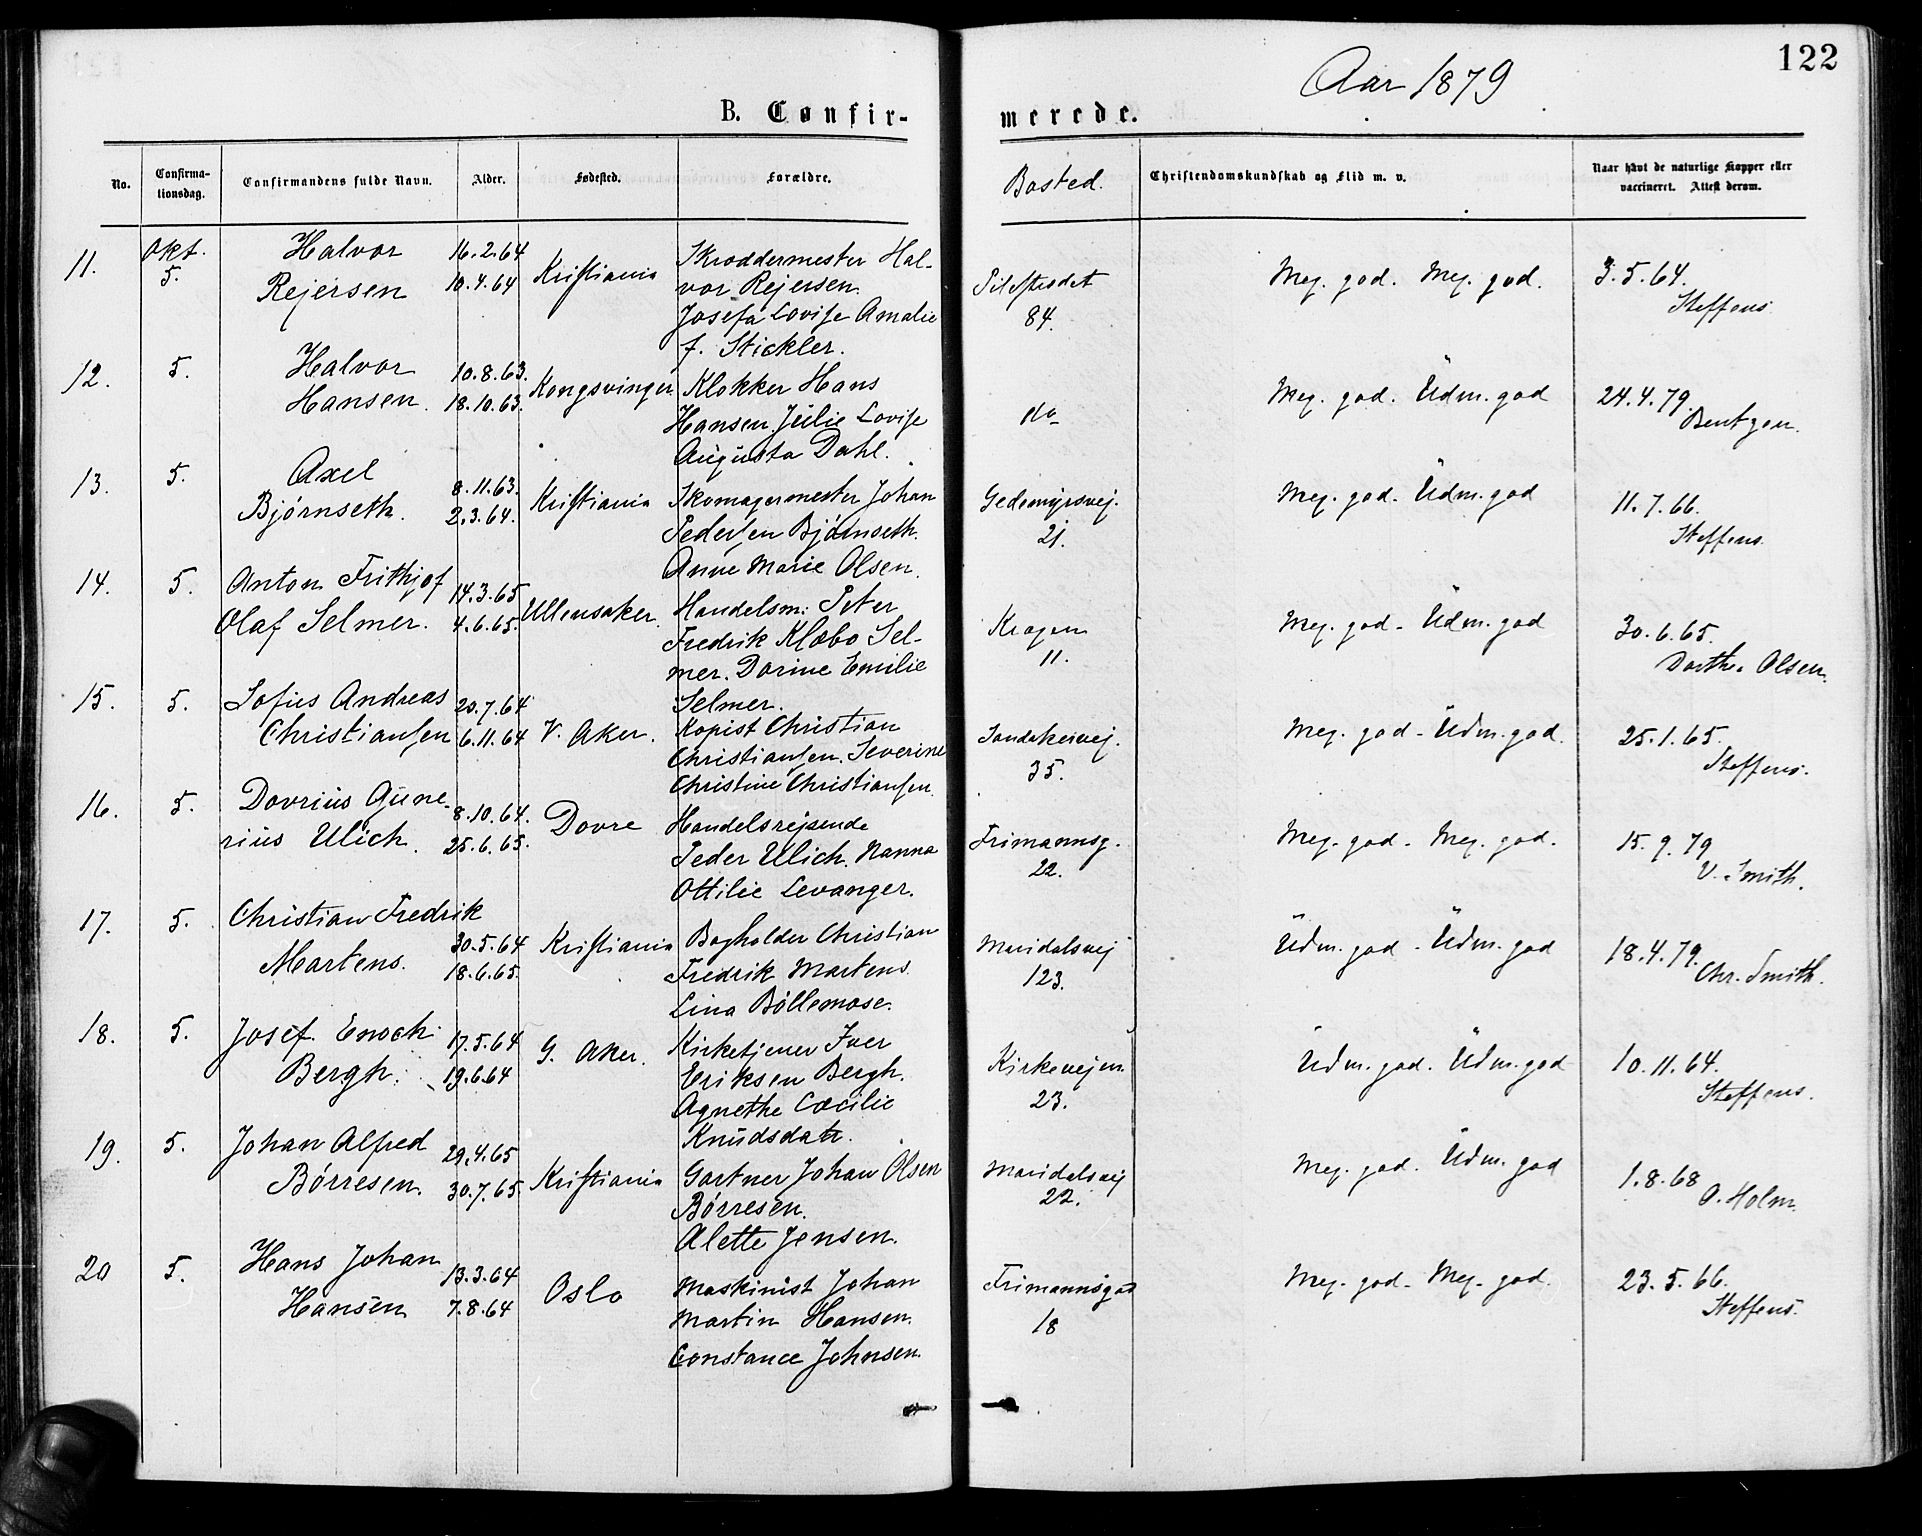 122
Aar 1879
B. Confir-
merede.
No.
Confirma-
tionsdag.
Confirmandens fulde Navn.
Alder.
Fødested.
Forældre.
Bosted.
Christendomskundskab og Flid m. v.
Naar havt de naturlige Kopper eller
vaccineret. Attest derom.
11.
Okt.
5.
Halvor
Rejersen
16.2.64
10.4.64
Kristiania
Skræddermester Hal-
vor Rejersen.
Josefa Lovise Amalie
f. Stickler.
Pilestrædet
84.
Meg. god. Meg. god.
3.5.64.
Steffens
12.
5.
Halvor
Hansen.
10.8.63.
18.10.63.
Kongsvinger
Klokker Hans
Hansen. Julie Lovise
Augusta Dahl.
do
Meg. god. Udm. god
24.4.79.
Bentzen.
13.
5.
Axel
Bjørnseth.
8.11.63.
2.3.64.
Kristiania
Skomagermester Johan
Pedersen Bjørnseth.
Anne Marie Olsen.
Gedemyrsvej.
21.
Meg. god. Udm. god
11.7.66.
Steffens
14.
5.
Anton Frithjof
Olaf Selmer.
14.3.65
4.6.65.
Ullensaker.
Handelsm: Peter
Fredrik Klæbo Sel-
mer. Dorine Emilie
Selmer.
Kragen
11.
Meg. god. Udm. god
30.6.65.
Dorthe Olsen.
15.
5.
Sofus Andreas
Christiansen
20.7.64
6.11.64
V. Aker.
Kopist Christian
Christiansen. Severine
Christine Christiansen.
Sandakervej.
35.
Meg. god. Udm. god.
25.1.65.
Steffens.
16.
5.
Dovrius Gune-
rius Ulich.
8.10.64.
25.6.65.
Dovre
Handelsrejsende
Peder Ulich. Nanna
Ottilie Levanger.
Frimannsg.
22.
Meg. god. Meg. god.
15.9.79
V. Smith.
17.
5.
Christian Fredrik
Martens.
30.5.64
18.6.65.
Kristiania
Bogholder Christian
Fredrik Martens.
Lina Bøllemose.
Maridalsvej
123.
Udm. god. Udm. god
18.4.79.
Chr. Smith.
18.
5.
Josef Enoch
Bergh.
17.5.64
19.6.64
G. Aker.
Kirketjener Iver
Eriksen Bergh.
Agnethe Cæcilie
Knudsdatr.
Kirkevejen
23.
Udm. god. Udm. god
10.11.64.
Steffens.
19.
5.
Johan Alfred
Børresen.
29.4.65
30.7.65.
Kristiania
Gartner Johan Olsen
Børresen.
Alette Jensen.
Maridalsvej
22.
Meg. god. Udm. god
1.8.68
O. Holm.
20
5.
Hans Johan
Hansen
13.3.64
7.8.64
Oslo
Maskinist Johan
Martin Hansen.
Constance Johnsen.
Frimannsgad
18
Meg. god. Meg. god.
23.5.66.
Steffens.